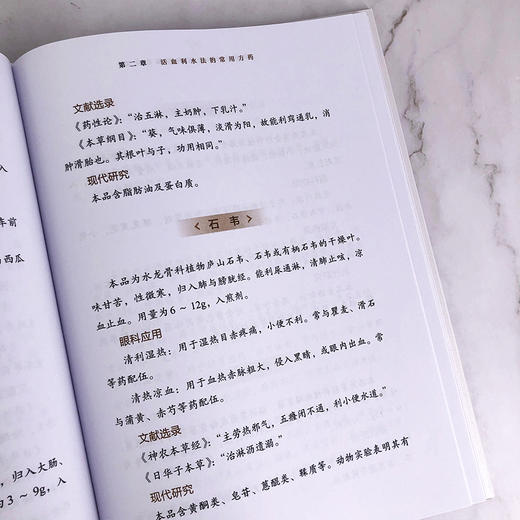 第二章 活血利水法的常用方药
文献选录
《药性论》：“治五淋，主奶肿，下乳汁。”
《本草纲目》：“葵，气味俱薄，淡滑为阳，故能利窍通乳，消
肿滑胎也。其根叶与子，功用相同。”
现代研究
本品含脂肪油及蛋白质。
〈石韦〉
本品为水龙骨科植物庐山石韦、石韦或有柄石韦的干燥叶。
味甘苦，性微寒，归入肺与膀胱经。能利尿通淋，清肺止咳，凉
血止血。用量为6～12g，入煎剂。
眼科应用
清利湿热：用于湿热目赤疼痛，小便不利。常与瞿麦、滑石
等药配伍。
清热凉血：用于血热赤脉粗大，侵入黑睛，或眼内出血。常
与蒲黄、赤芍等药配伍。
文献选录
《神农本草经》：“主劳热邪气，五癃闭不通，利小便水道。”
《日华子本草》：“治淋沥遗溺。”
现代研究
本品含黄酮类、皂苷、蒽醌类、鞣质等。动物实验表明其有
车前
西瓜
，归入大肠、
为3～9g，入